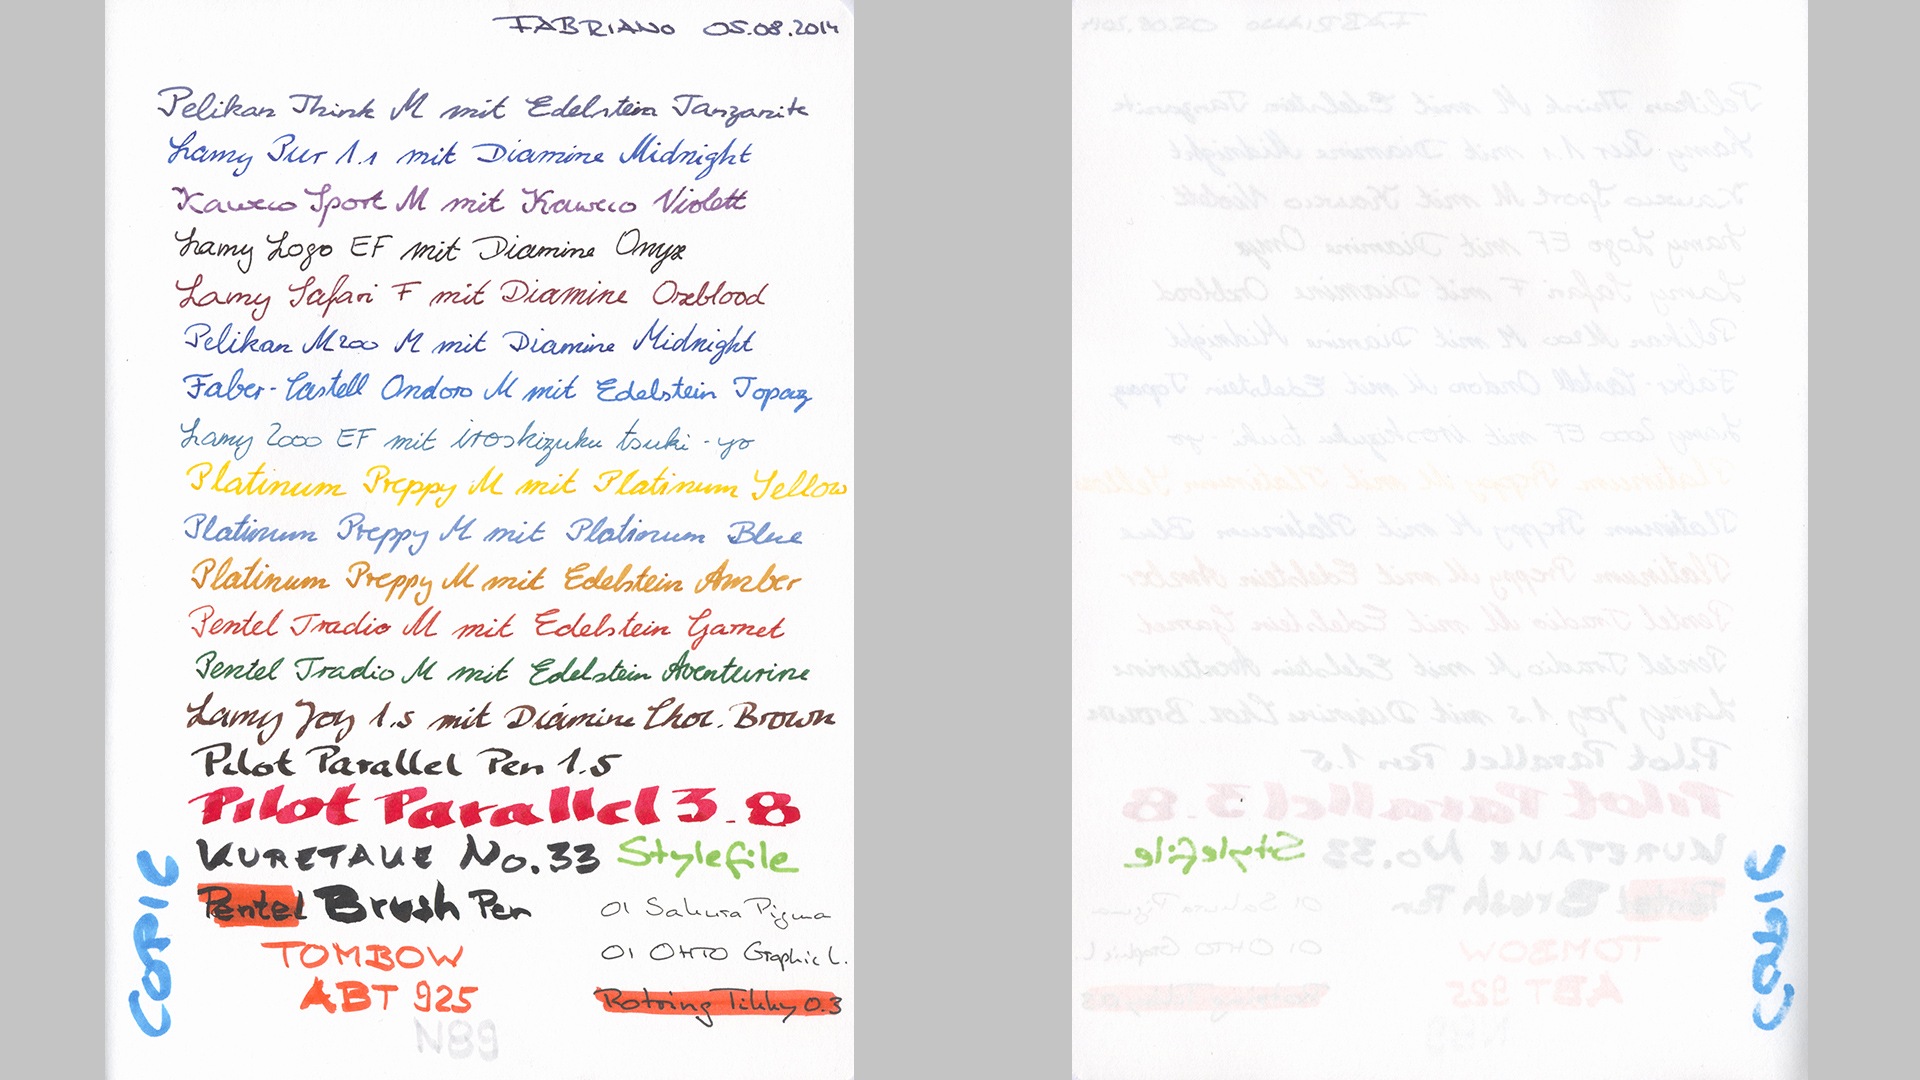 FABRIANO 05.08.2014
Pelikan Think M mit Edelstein Tanzanite
Lamy Pur 1.1 mit Diamine Midnight
Kaweco Sport M mit Kaweco Violett
Lamy Logo EF mit Diamine Onyx
Lamy Safari F mit Diamine Oxblood
Pelikan M200 M mit Diamine Midnight
Faber-Castell Ondoro M mit Edelstein Topaz
Lamy 2000 EF mit iroshizuku tsuki-yo
Platinum Preppy M mit Platinum Yellow
Platinum Preppy M mit Platinum Blue
Platinum Preppy M mit Edelstein Amber
Pentel Tradio M mit Edelstein Garnet
Pentel Tradio M mit Edelstein Aventurine
Lamy Joy 1.5 mit Diamine Choc. Brown
Pilot Parallel Pen 1.5
Pilot Parallel 3.8
KURETAKE No.33 Stylefile
COPIC
Pentel Brush Pen
01 Sakura Pigma
TOMBOW
01 OHTO Graphic L.
ABT 925
Rotring Tikky 0.3
N89